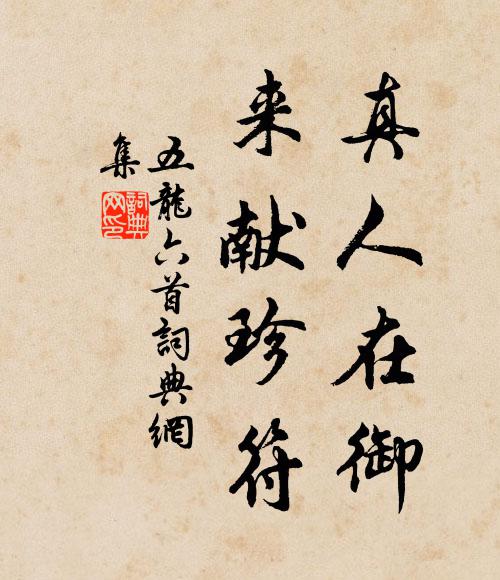 真人在御
来献珍符
五龍六首詞典網
集
詞典
网印